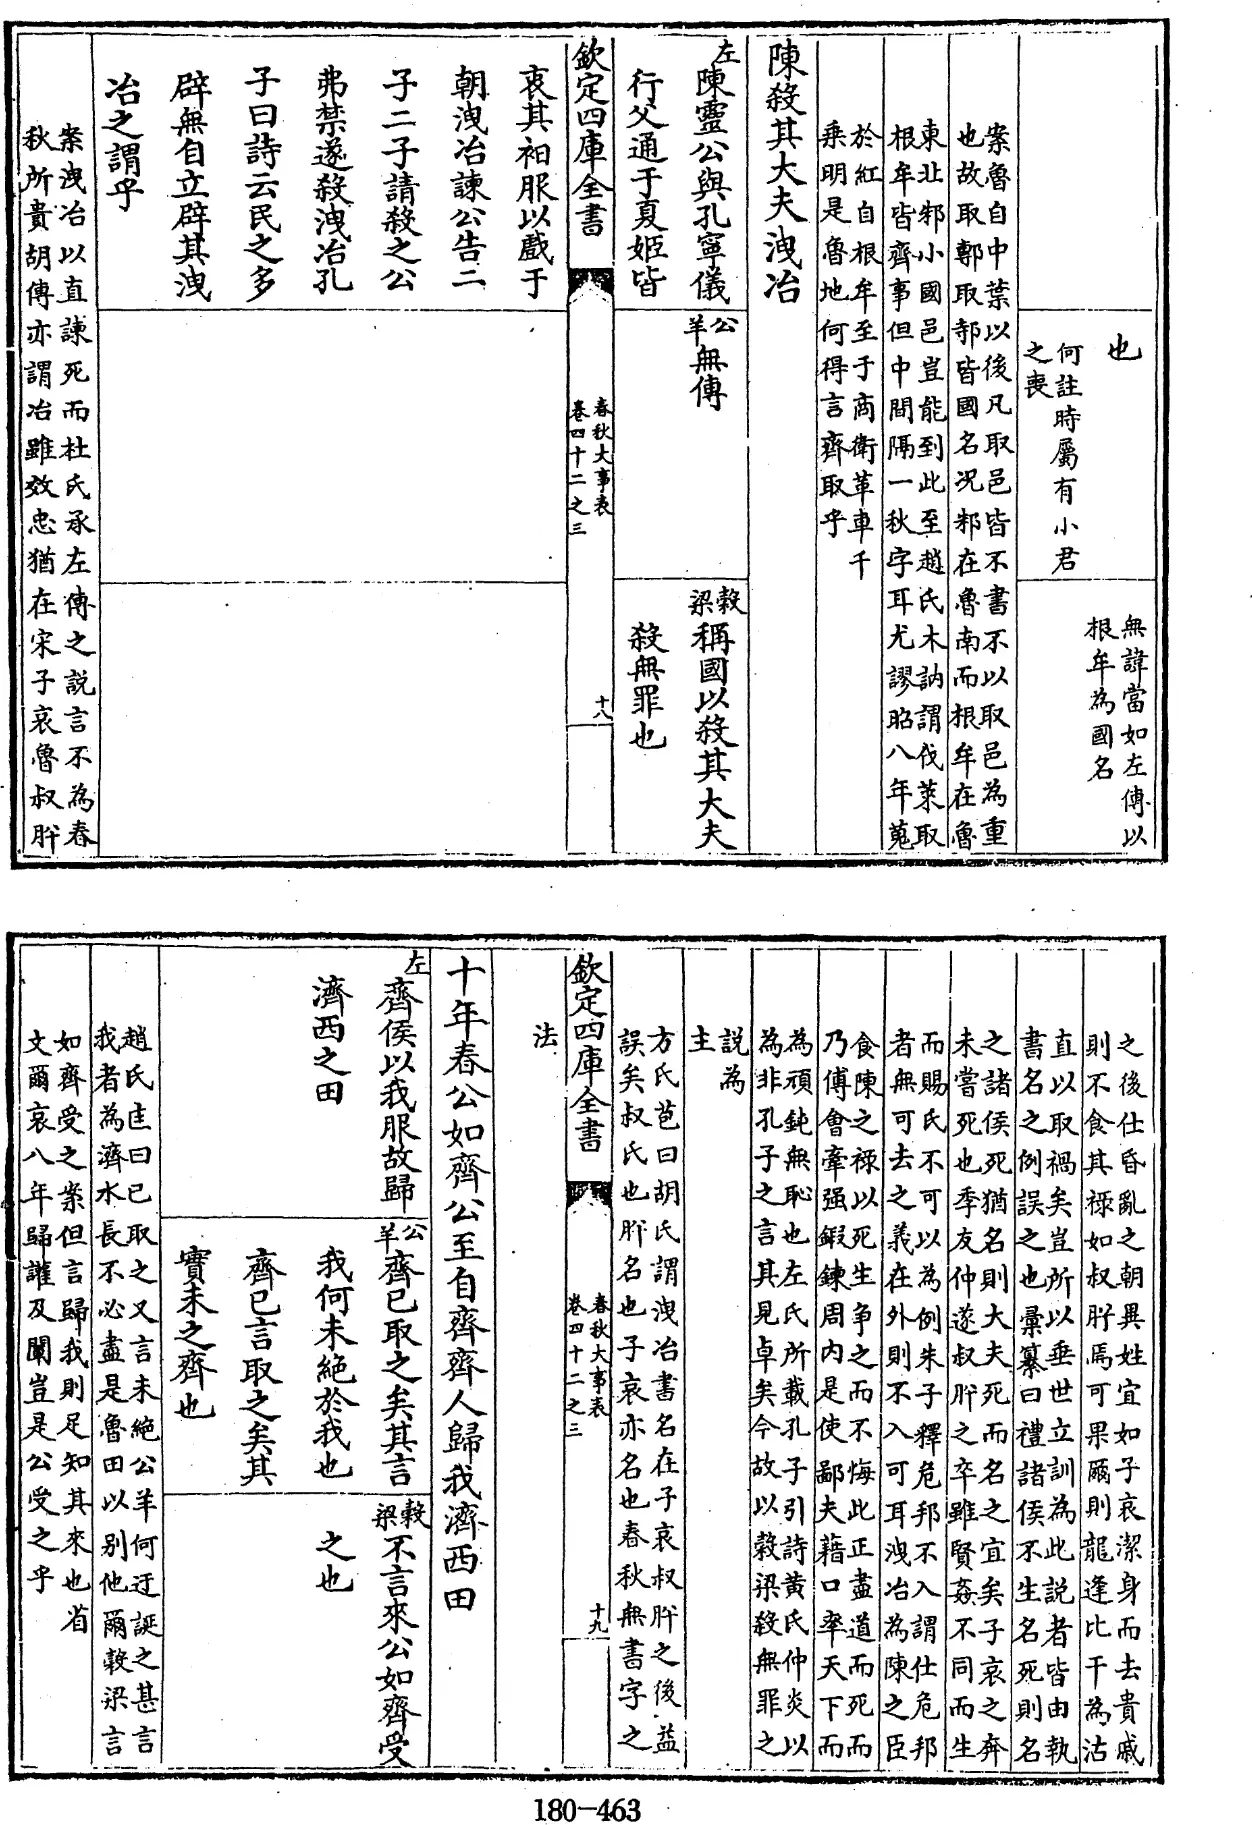 也
何註時屬有小君
之喪
無諱當如左傳以
根牟為國名
案魯自中葉以後凡取邑皆不書不以取邑為重
也故取鄟取邿皆國名况邾在魯南而根牟在魯
東北邾小國邑豈能到此至趙氏木訥謂伐萊取
根牟皆齊事但中間隔一秋字耳尤謬昭八年蒐
於紅自根牟至于商衛革車千
乗明是魯地何得言齊取乎
陳殺其大夫洩冶
左
陳靈公與孔寧儀
行父通于夏姬皆
公羊
無傳
穀梁
稱國以殺其大夫
殺無罪也
欽定四庫全書
春秋大事表
卷四十二之三
十八
衷其衵服以戲于
朝洩冶諫公告二
子二子請殺之公
弗禁遂殺洩冶孔
子曰詩云民之多
辟無自立辟其洩
冶之謂乎
案洩冶以直諫死而杜氏承左傳之説言不為春
秋所貴胡傳亦謂冶雖效忠猶在宋子哀魯叔肸
之後仕昏亂之朝異姓宜如子哀潔身而去貴戚
則不食其禄如叔肸焉可果爾則龍逄比干為沽
直以取禍矣豈所以垂世立訓為此説者皆由執
書名之例誤之也彙纂曰禮諸侯不生名死則名
之諸侯死猶名則大夫死而名之宜矣子哀之奔
未嘗死也季友仲遂叔肸之卒雖賢姦不同而生
而賜氏不可以為例朱子釋危邦不入謂仕危邦
者無可去之義在外則不入可耳洩冶為陳之臣
食陳之禄以死生争之而不悔此正盡道而死而
乃傅會牽强鍜鍊周内是使鄙夫藉口率天下而
為頑鈍無恥也左氏所載孔子引詩黄氏仲炎以
為非孔子之言其見卓矣今故以穀梁殺無罪之
説為
主
方氏苞曰胡氏謂洩冶書名在子哀叔肸之後益
誤矣叔氏也肸名也子哀亦名也春秋無書字之
欽定四庫全書
春秋大事表
卷四十二之三
十九
法
十年春公如齊公至自齊齊人歸我濟西田
左
齊侯以我服故歸
濟西之田
公羊
齊已取之矣其言
我何未絶於我也
齊已言取之矣其
實未之齊也
穀梁
不言來公如齊受
之也
趙氏匡曰已取之又言未絶公羊何迂誕之甚言
我者為濟水長不必盡是魯田以别他爾穀梁言
如齊受之案但言歸我則足知其來也省
文爾哀八年歸讙及闡豈是公受之乎
180-463